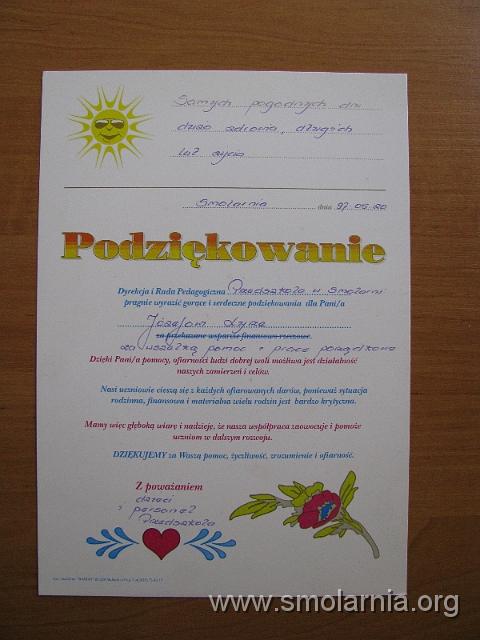 Samych pogodnych dni
dużo zdrowia, długich
lat życia
Smolarnia dnia 97.05.20
Podziękowanie
Dyrekcja i Rada Pedagogiczna Przedszkola w Smolarni
pragnie wyrazić gorące i serdeczne podziękowania dla Pani/a
za przekazane wsparcie finansowo rzeczowe.
za wszelką pomoc i prace porządkowe
Dzięki Pani/a pomocy, ofiarności ludzi dobrej woli możliwa jest działalność
naszych zamierzeń i celów.
Nasi uczniowie cieszą się z każdych ofiarowanych darów, ponieważ sytuacja
rodzinna, finansowa i materialna wielu rodzin jest bardzo krytyczna.
Mamy więc głęboką wiarę i nadzieję, że nasza współpraca zaowocuje i pomoże
uczniom w dalszym rozwoju.
DZIĘKUJEMY za Waszą pomoc, życzliwość, zrozumienie i ofiarność.
Z poważaniem
dzieci
i personel
Przedszkola
www.smolarnia.org